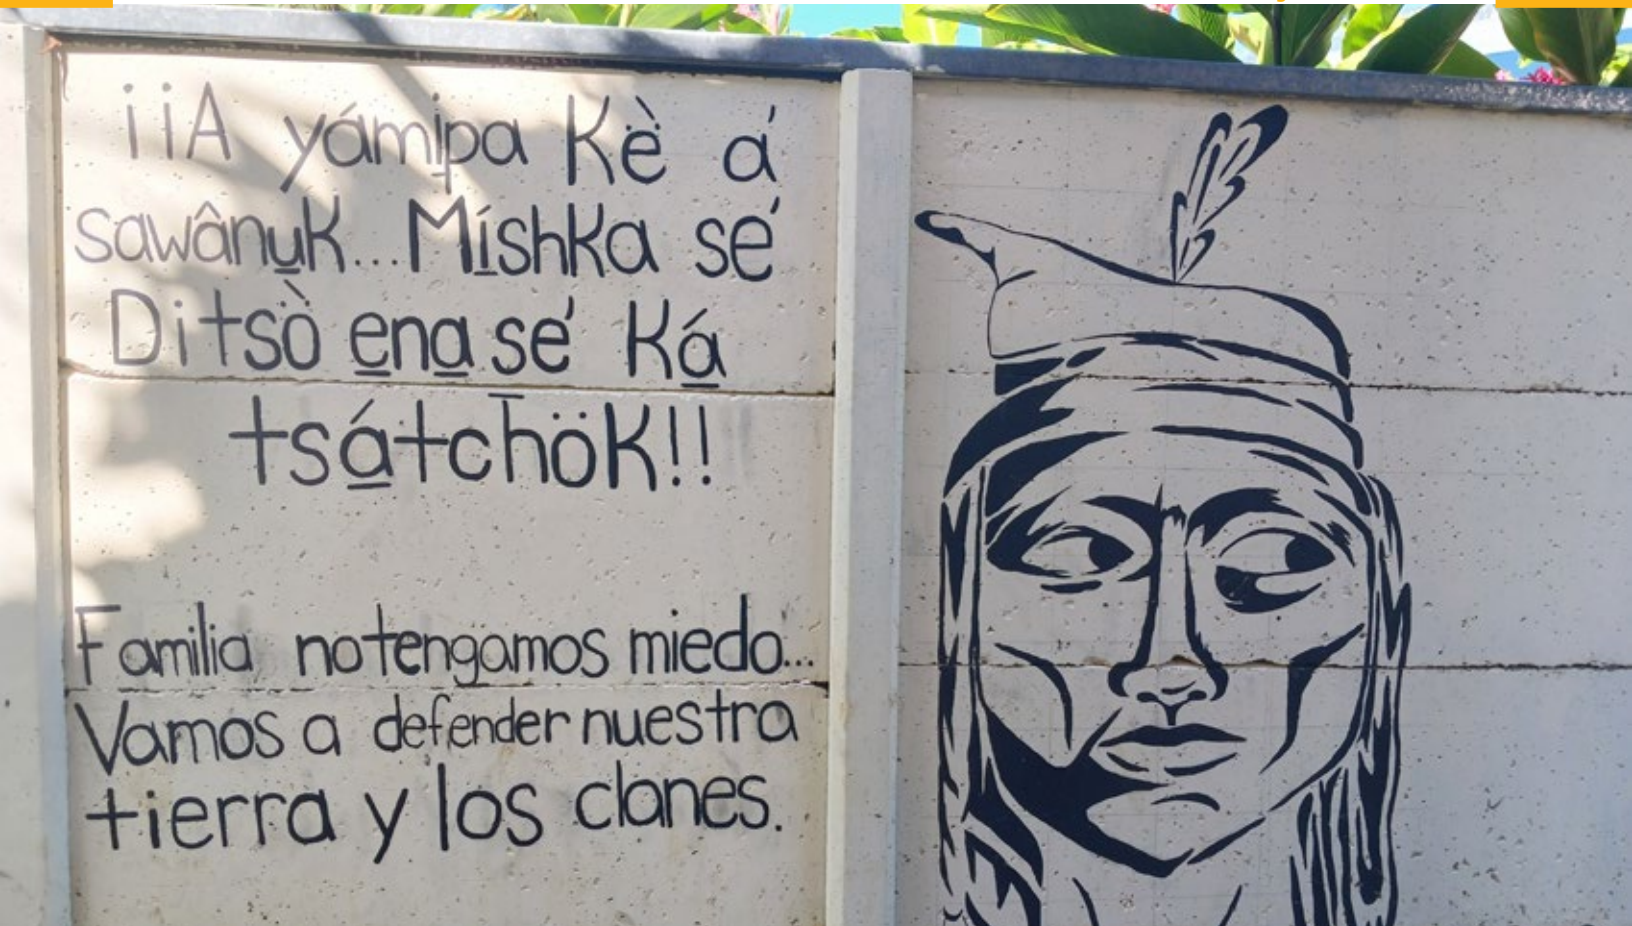 ¡¡A yámi̱pa Kè̈ á'
sawânu̱K...Mí̱shKa sé'
Ditsö̀ e̱na̱ sé' Ká̱
tsá̱tchöK!!
Familia no tengamos miedo...
Vamos a defender nuestra
tierra y los clanes.